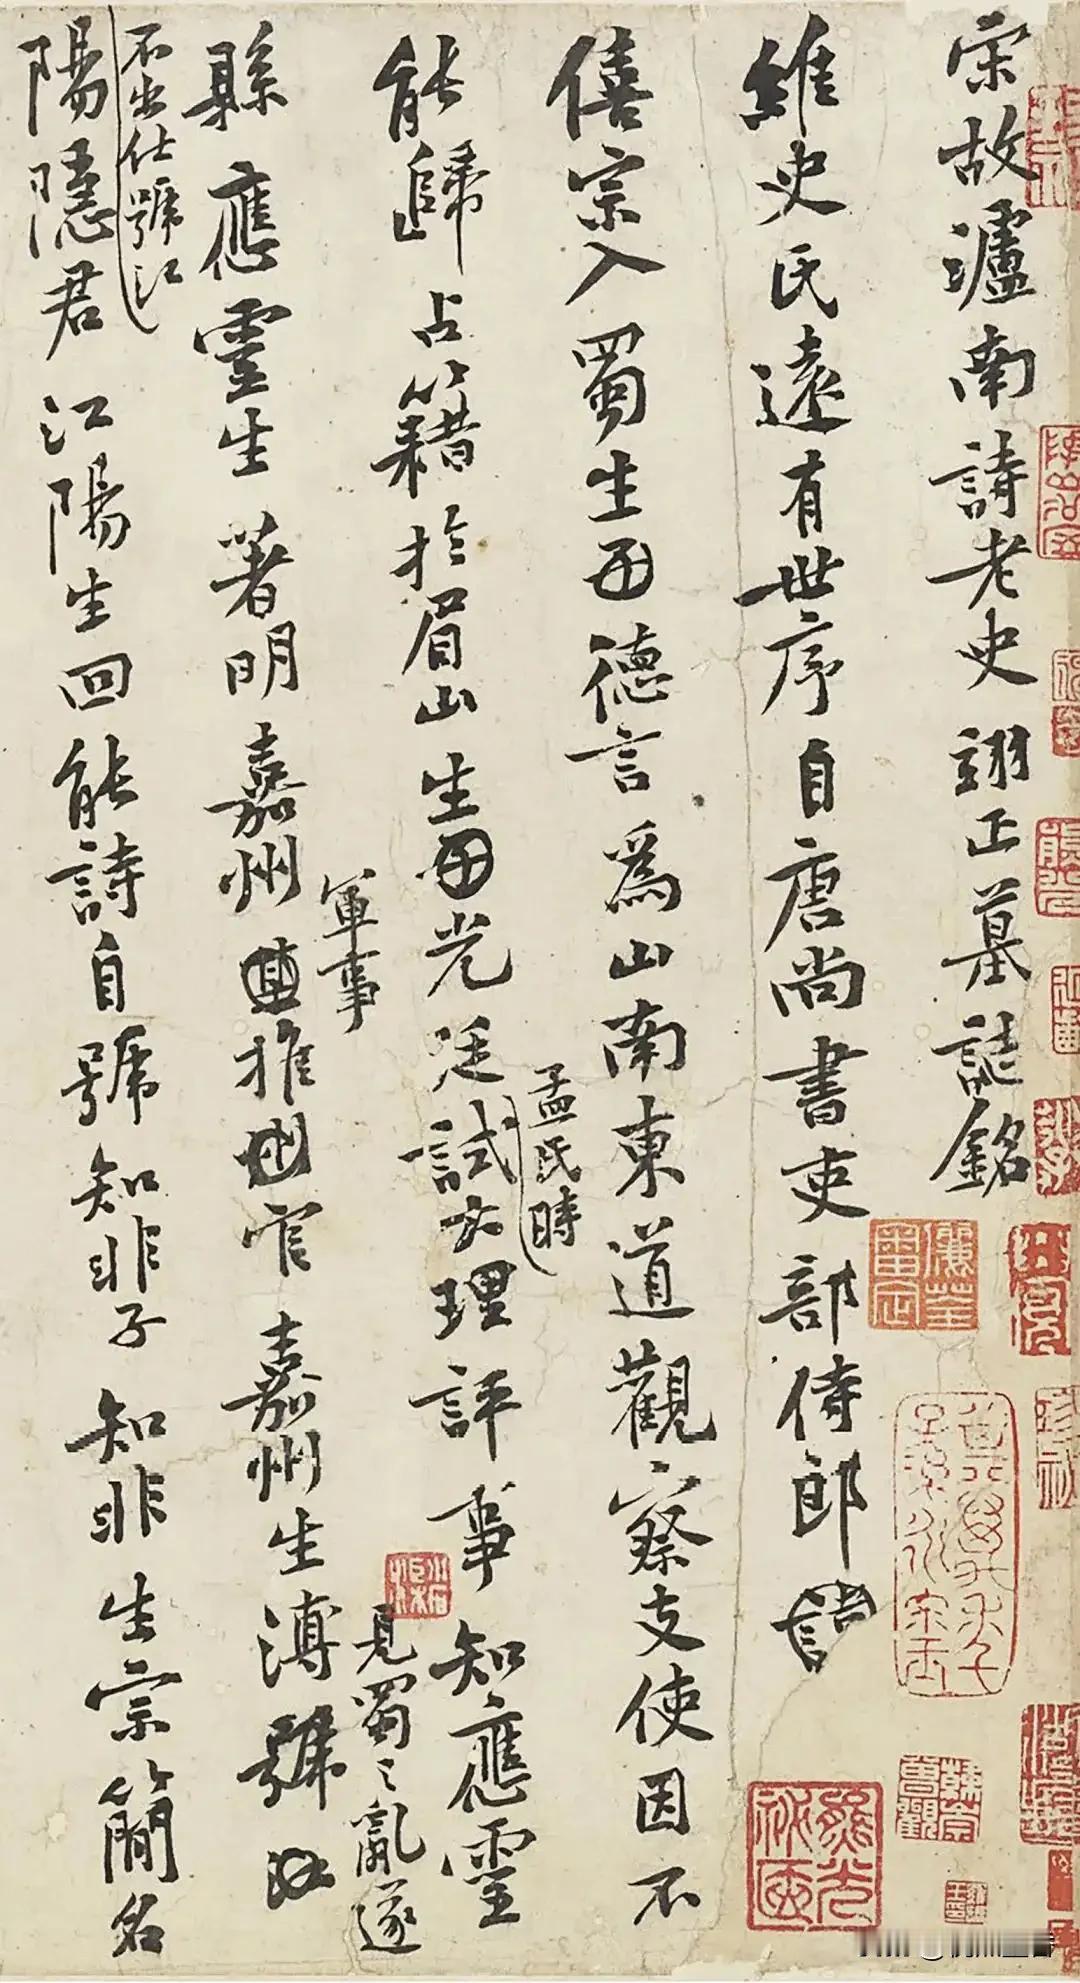 宋故瀘南詩老史翊正墓誌銘
維史氏遠有世序自唐尚書吏部侍郎
僖宗入蜀生德言為山南東道觀察支使因不
能歸占籍於眉山生光廷試大理評事知應靈
孟氏時
縣應靈生著明嘉州推官嘉州生溥號
軍事
見蜀之亂遂
不出仕號江
陽隱君江陽生回能詩自號知非子知非生宗簡名